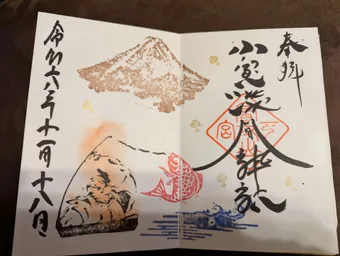 奉拝
小室浅間神社
令和六年十一月十八日